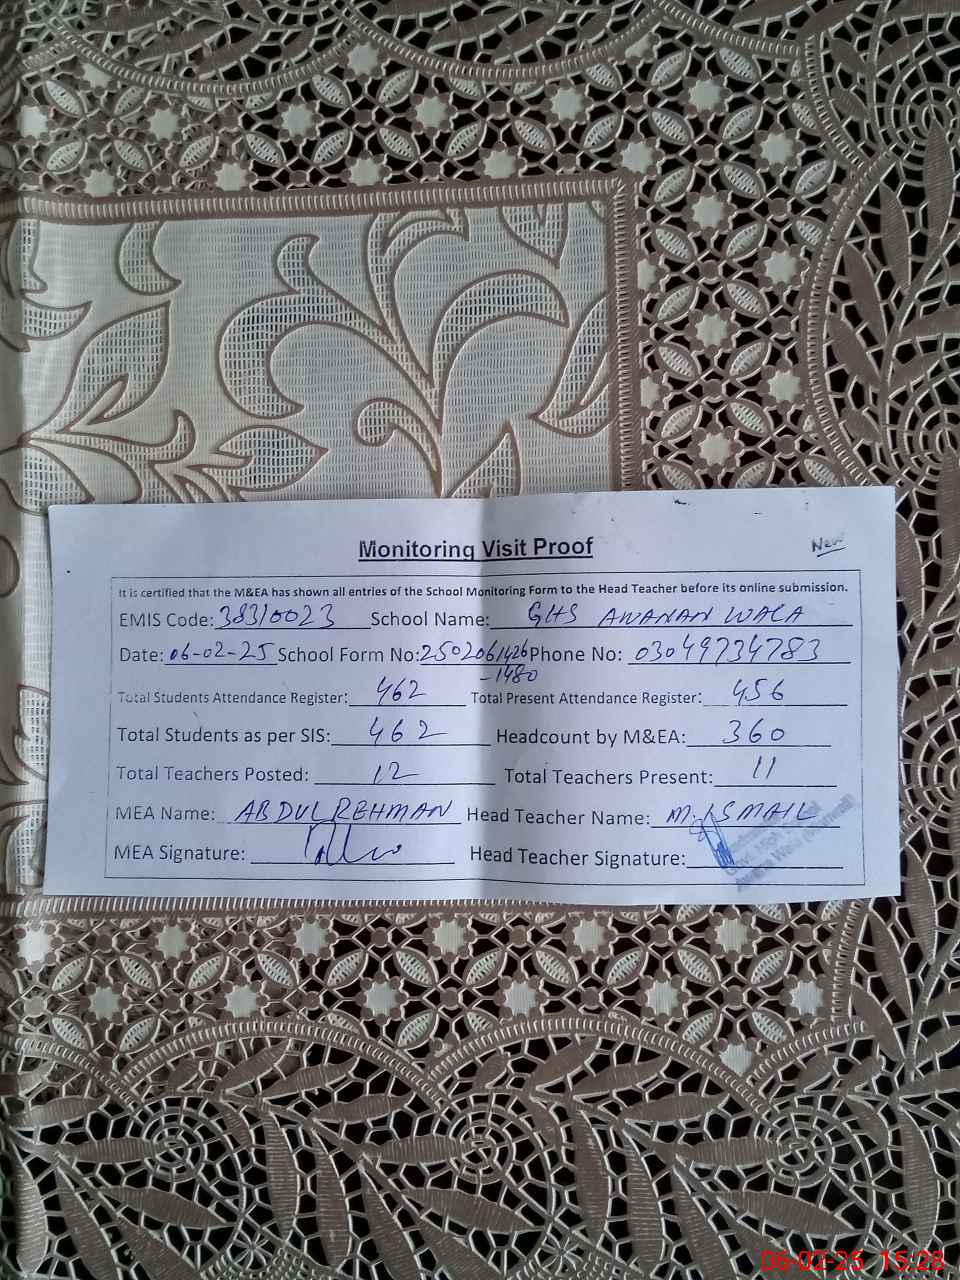 Monitoring Visit Proof
New
It is certified that the M&EA has shown all entries of the School Monitoring Form to the Head Teacher before its online submission.
EMIS Code: 38310023 School Name: GHS AWANAN WALA
Date: 06-02-25 School Form No: 2502061426 Phone No: 03049734783
-1480
Total Students Attendance Register: 462 Total Present Attendance Register: 456
Total Students as per SIS: 462 Headcount by M&EA: 360
Total Teachers Posted: 12 Total Teachers Present: 11
MEA Name: ABDUL REHMAN Head Teacher Name: M. ISMAIL
MEA Signature: Head Teacher Signature:
Govt. High School
Awanan Wala (Mianwali)
06-02-25 15:28